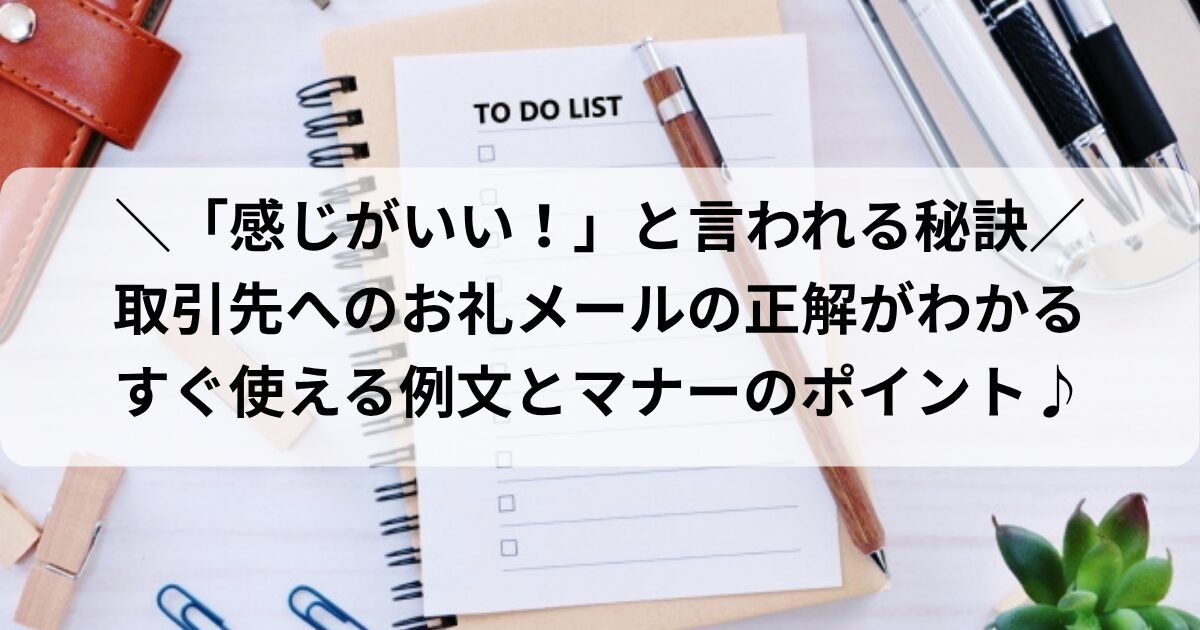 TO DO LIST
＼「感じがいい！」と言われる秘訣／
取引先へのお礼メールの正解がわかる
すぐ使える例文とマナーのポイント♪